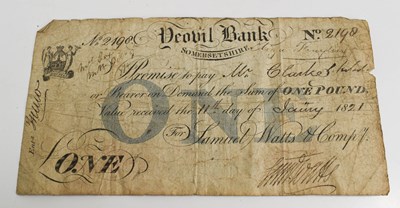 No. 2198 Yeovil Bank No 2198
SOMERSETSHIRE.
I Promise to pay Mr. Clarke
or Bearer on Demand the Sum of ONE POUND.
Value received the 11th day of Jany 1821
For Samuel Watts & Compy.
ONE
£ONE